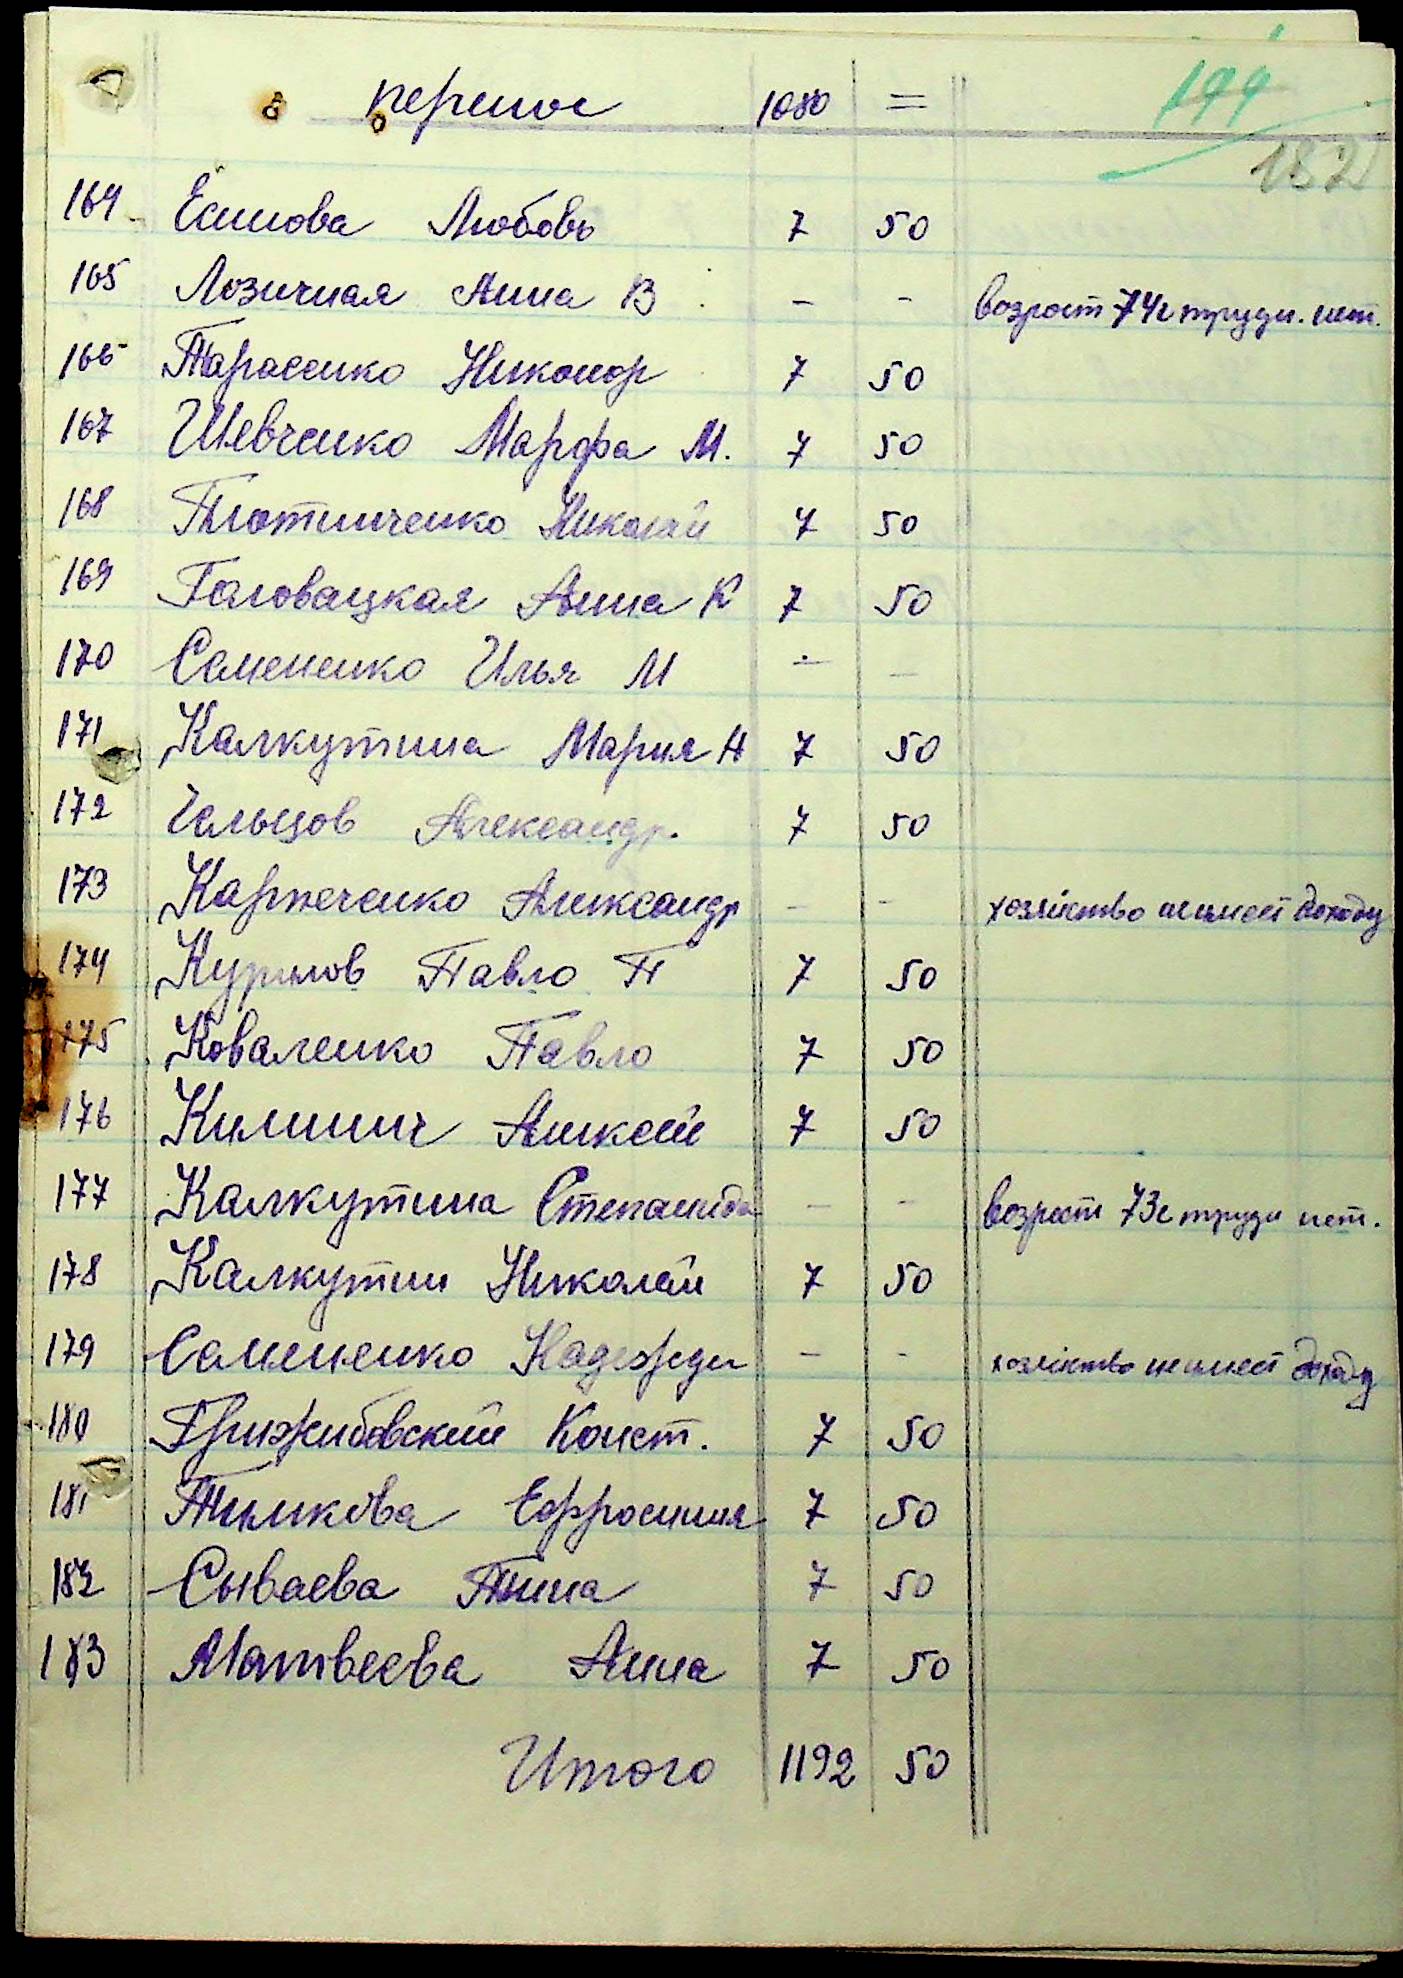 199
перенос 1080 =
182
164 Есипова Любовь 7 50
165 Лозичная Анна В - - возраст 74г труди. нет.
166 Тарасенко Никонор 7 50
167 Шевченко Марфа М. 7 50
168 Плотниченко Николай 7 50
169 Головацкая Анна К 7 50
170 Семененко Илья М - -
171 Калкутина Мария Н 7 50
172 Чельцов Александр. 7 50
173 Карпеченко Александр - - хозяйство не имеет доходу
174 Курилов Павло П 7 50
175 Коваленко Павло 7 50
176 Килинич Алексей 7 50
177 Калкутина Степанида - - возраст 73г труди нет.
178 Калкутин Николай 7 50
179 Семененко Надежда - - хозяйство не имеет доходу
180 Гржибовский Конст. 7 50
181 Тимкова Ефросиния 7 50
182 Сываева Анна 7 50
183 Матвеева Анна 7 50
Итого 1192 50